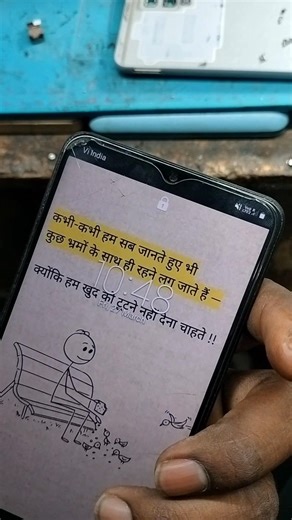 Vi India
कभी-कभी हम सब जानते हुए भी
कुछ भ्रमों के साथ ही रहने लग जाते हैं –
10:48
क्योंकि हम खुद को टूटने नहीं देना चाहते !!